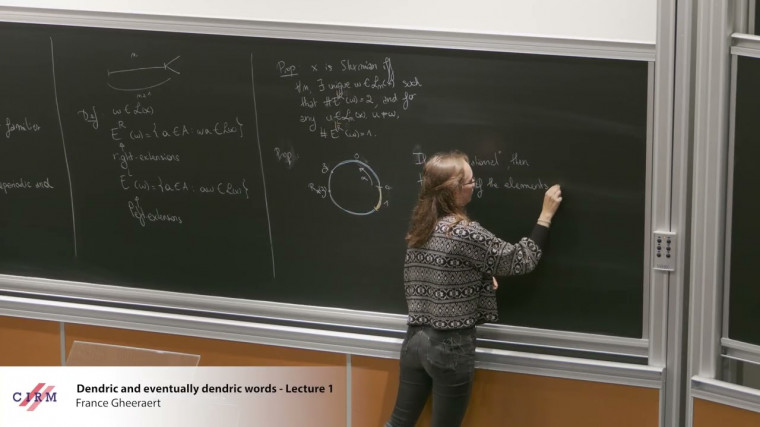 families
eperiodic and
n
n+1
Def w ∈ L(x)
E^R(w) = {a ∈ A : wa ∈ L(x)}
right-extensions
E^L(w) = {a ∈ A : aw ∈ L(x)}
left-extensions
Prop x is Sturmian iff
∀n, ∃ unique w ∈ Ln(x) such
that #E^R(w) = 2, and for
any u ∈ Ln(x), u ≠ w,
#E^R(u) = 1.
Prop
0
then
of the elements
Dendric and eventually dendric words - Lecture 1
France Gheeraert
CIRM